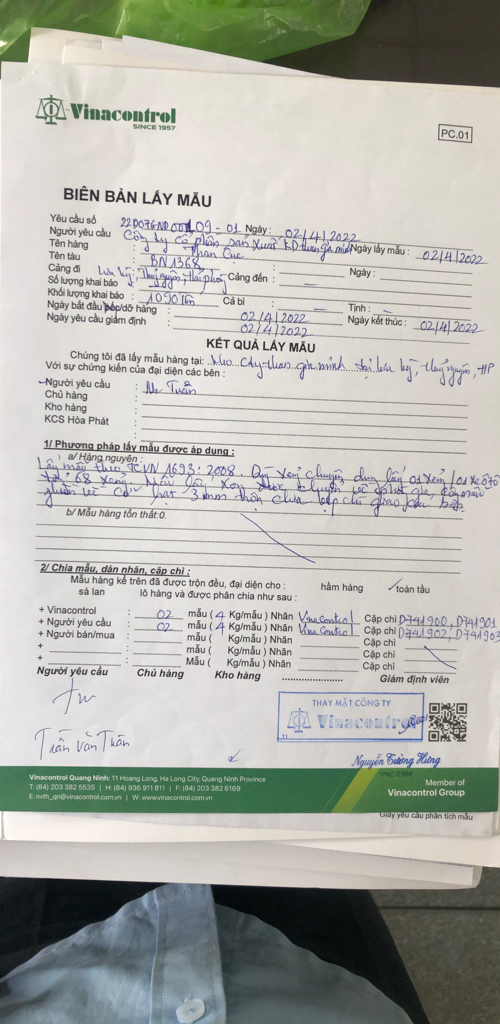 Vinacontrol
SINCE 1957
PC.01
BIÊN BẢN LẤY MẪU
Yêu cầu số 22D07GND00109-01 Ngày: 02/4/2022
Người yêu cầu Công ty cổ phần sản xuất KD than gia minh Ngày lấy mẫu: 02/4/2022
Tên hàng Than Cục
Tên tàu BN1368 Ngày:
Cảng đi Lưu kỳ, Thuỷ nguyên, Hải phòng Cảng đến:
Số lượng khai báo
Khối lượng khai báo: Cả bì Tịnh:
Ngày bắt đầu bốc/dỡ hàng 02/4/2022 Ngày kết thúc: 02/4/2022
Ngày yêu cầu giám định 02/4/2022
KẾT QUẢ LẤY MẪU
Chúng tôi đã lấy mẫu hàng tại: kho Cty than gia minh tại lưu kỳ, thuỷ nguyên, HP
Với sự chứng kiến của đại diện các bên:
Người yêu cầu: Mr Tuấn
Chủ hàng
Kho hàng
KCS Hòa Phát
1/ Phương pháp lấy mẫu được áp dụng:
a/ Hàng nguyên:
Lấy mẫu theo TCVN 1693:2008. lấy
68 xẻng. Mẫu lấy xong được chuyển về
b/ Mẫu hàng tổn thất:0.
2/ Chia mẫu, dán nhãn, cặp chì:
Mẫu hàng kể trên đã được trộn đều, đại diện cho: hầm hàng ✓toàn tàu
sà lan lô hàng và được phân chia như sau:
+ Vinacontrol : 02 mẫu (4 Kg/mẫu) Nhãn Vinacontrol Cặp chì D741900, D741901
+ Người yêu cầu : 02 mẫu (4 Kg/mẫu) Nhãn Vinacontrol Cặp chì D741902, D741903
+ Người bán/mua : mẫu ( Kg/mẫu) Nhãn Cặp chì
+ : mẫu ( Kg/mẫu) Nhãn Cặp chì
+ : Mẫu ( Kg/mẫu) Nhãn Cặp chì
Người yêu cầu Chủ hàng Kho hàng Giám định viên
THAY MẶT CÔNG TY
Vinacontrol
Trần Văn Tuân
Nguyễn Tường Hưng
VNC 0368
Vinacontrol Quang Ninh: 11 Hoang Long, Ha Long City, Quang Ninh Province
T: (84) 203 382 5535 | H: (84) 936 911 811 | F: (84) 203 382 6169
E: nvth_qn@vinacontrol.com.vn | W: www.vinacontrol.com.vn
Member of
Vinacontrol Group
Giấy yêu cầu phân tích mẫu